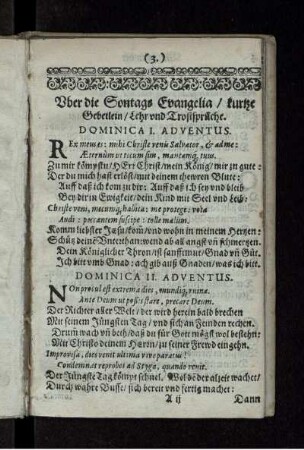 (3.)
Vber die Sontags Evangelia / kurtze
Gebetlein / Lehr vnd Trostsprüche.
DOMINICA I. ADVENTUS.
REx meus es: mihi Christe venis Salvator, & ad me:
Æternùm ut tecum sim, maneamq́; tuus.
Zu mir kömpstu / HErr Christ / mein König / mir zu gute:
Der du mich hast erlöst / mit deinem thewren Blute:
Auff daß ich kom zu dir: Auff daß ich sey vnd bleib
Bey dir in Ewigkeit / dein Kind mit Seel vnd Leib:
Christe veni, mecumq́; habita: me protege: vota
Audi: peccantem suscipe: tolle malum.
Komm liebster Jesu / kom / vnd wohn in meinem Hertzen:
Schütz deinē Vnterthan: wend ab all angst vñ schmertzen.
Dein Königlicher Thron / ist sanfftmut / Gnad vñ Güt.
Ich bitt vmb Gnad: ach gib auß Gnaden / was ich bitt.
DOMINICA II. ADVENTUS.
NOn procul est extrema dies, mundiq́; ruina.
Ante Deum ut possis stare, precare Deum.
Der Richter aller Welt / der wird herein bald brechen
Mit seinem Jüngsten Tag / vnd sich an Feinden rechen.
Drum wach vñ beth / daß du für Gott mögst wol bestehn:
Mit Christo deinem Herrn / zu seiner Frewd eingehn.
Improvisa, dies venit ultima: vive paratus!
Condemnat reprobos ad Styga, quando venit.
Der Jüngste Tag kömpt schnel. Wol dē der alzeit wachet /
Durch wahre Busse / sich bereit vnd fertig machet:
A ij
Dann